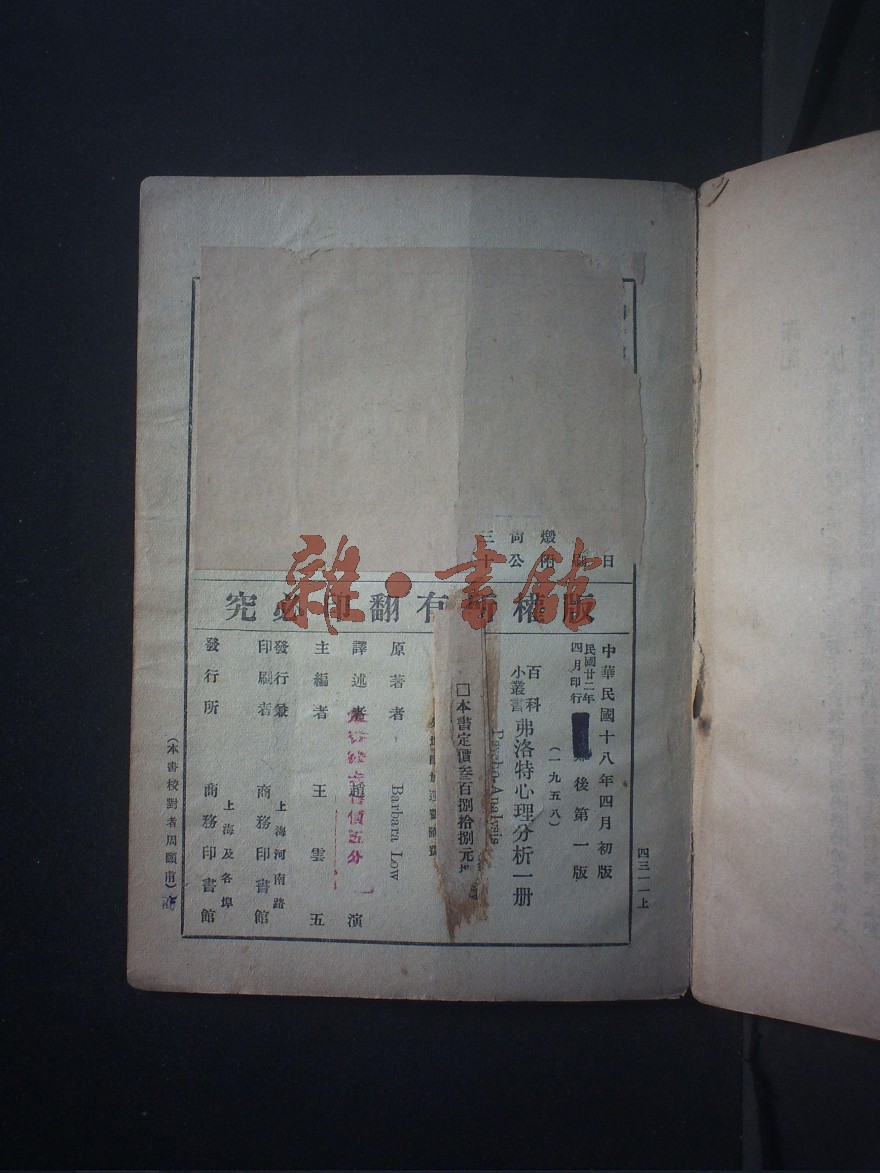 三 尙 燬
十 公 附 日
雜·書館
版權所有翻印必究
四三一一上
中華民國十八年四月初版
民國廿二年
四月印行
後第一版
(一九五八)
百科
小叢書
弗洛特心理分析一册
Psycho-Analysis
□本書定價叁百捌拾捌元
原著者 Barbara Low
譯述者 趙演
價五分
主編者 王雲五
發行兼
印刷者
上海河南路
商務印書館
發行所
上海及各埠
商務印書館
(本書校對者周頤甫)